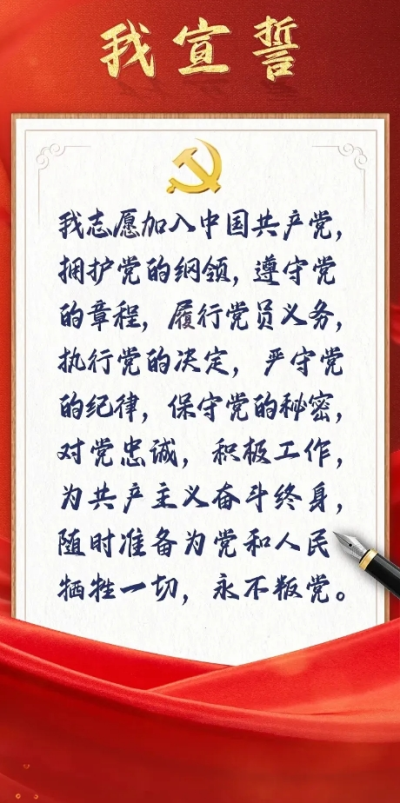 我宣誓
我志愿加入中国共产党，
拥护党的纲领，遵守党
的章程，履行党员义务，
执行党的决定，严守党
的纪律，保守党的秘密，
对党忠诚，积极工作，
为共产主义奋斗终身，
随时准备为党和人民
牺牲一切，永不叛党。